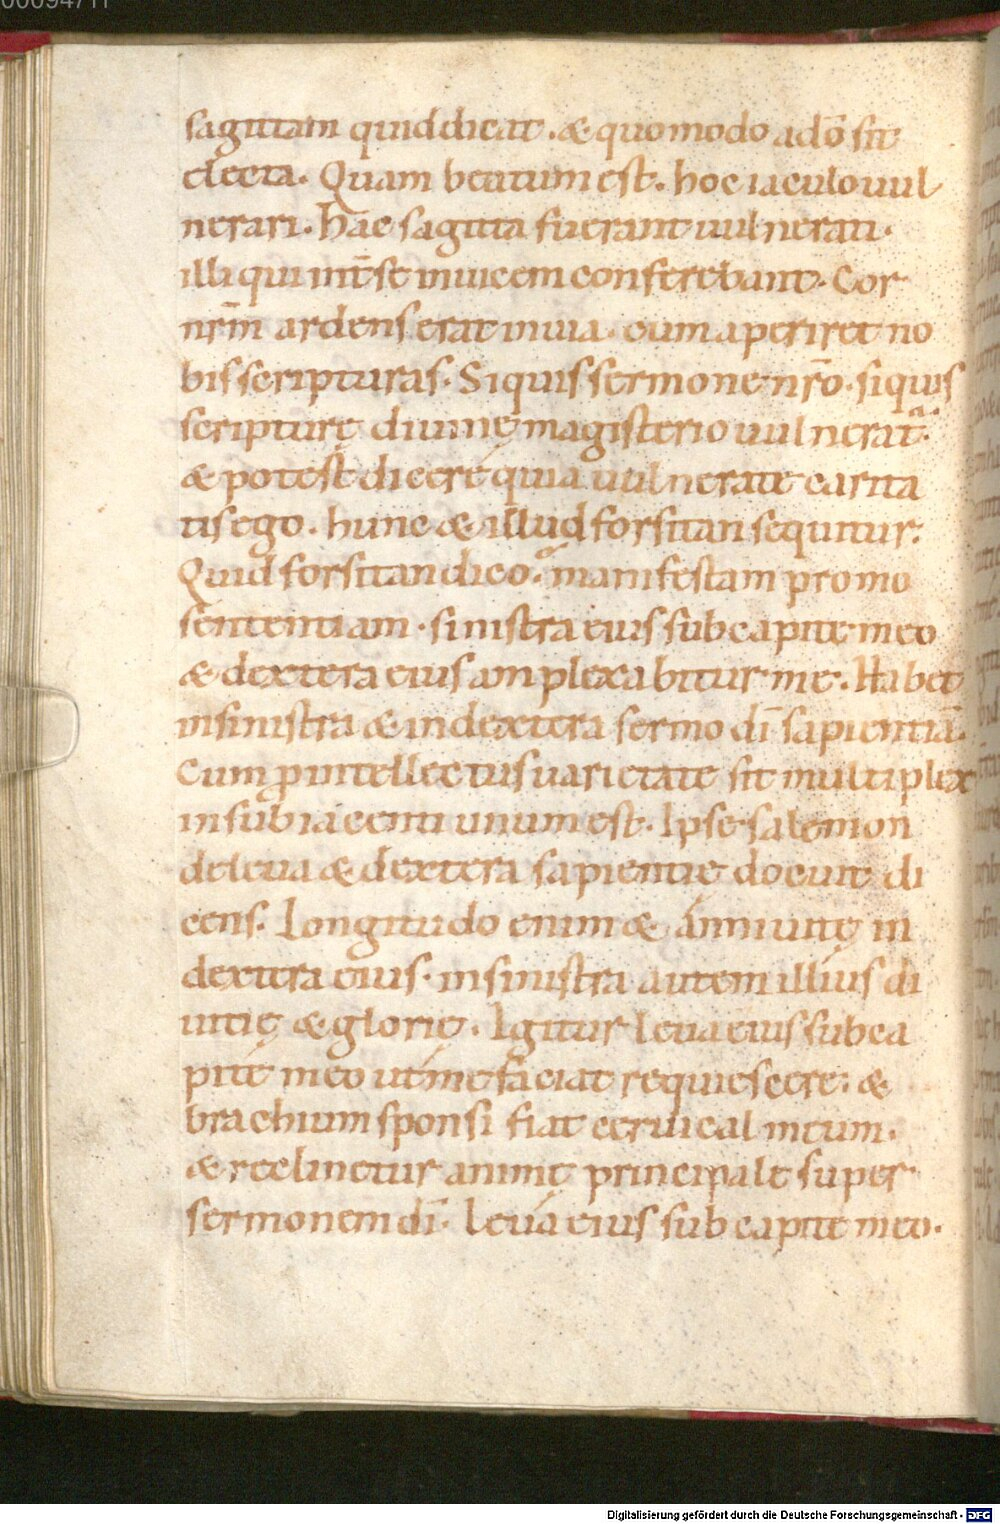 00094711
sagittam quid dicat. & quomodo a dō sit
electa. Quam beatum est. hoc iaculo uul
nerari. hac sagitta fuerant uulnerati.
illi qui int̄ se inuicem conferebant. Cor
nr̄m ardens erat in uia. cum aperiret no
bis scripturas. Siquis sermone nr̄o. siquis
scripturę diuinę magisterio uulnerat᷒.
& potest dicere quia uulnerate carita
tis ego. hunc & illud forsitan sequitur.
Quid forsitan dico. manifestam promo
sententiam. sinistra eius sub capite meo
& dextera eius amplexabitur me. Habet
in sinistra & in dextera sermo dī sapientiā.
Cum ꝓ intellectus uarietate sit multiplex
in subiacenti unum est. Ipse salemon
de leua & dextera sapientię docuit di
cens. Longitudo enim & anni uitę in
dextera eius. in sinistra autem illius di
uitię & glorię. Igitur leua eius sub ca
pite meo ut me faciat requiescere. &
brachium sponsi fiat ceruical meum.
& reclinetur animę principale super
sermonem dī. Leua eius sub capite meo.
Digitalisierung gefördert durch die Deutsche Forschungsgemeinschaft - DFG